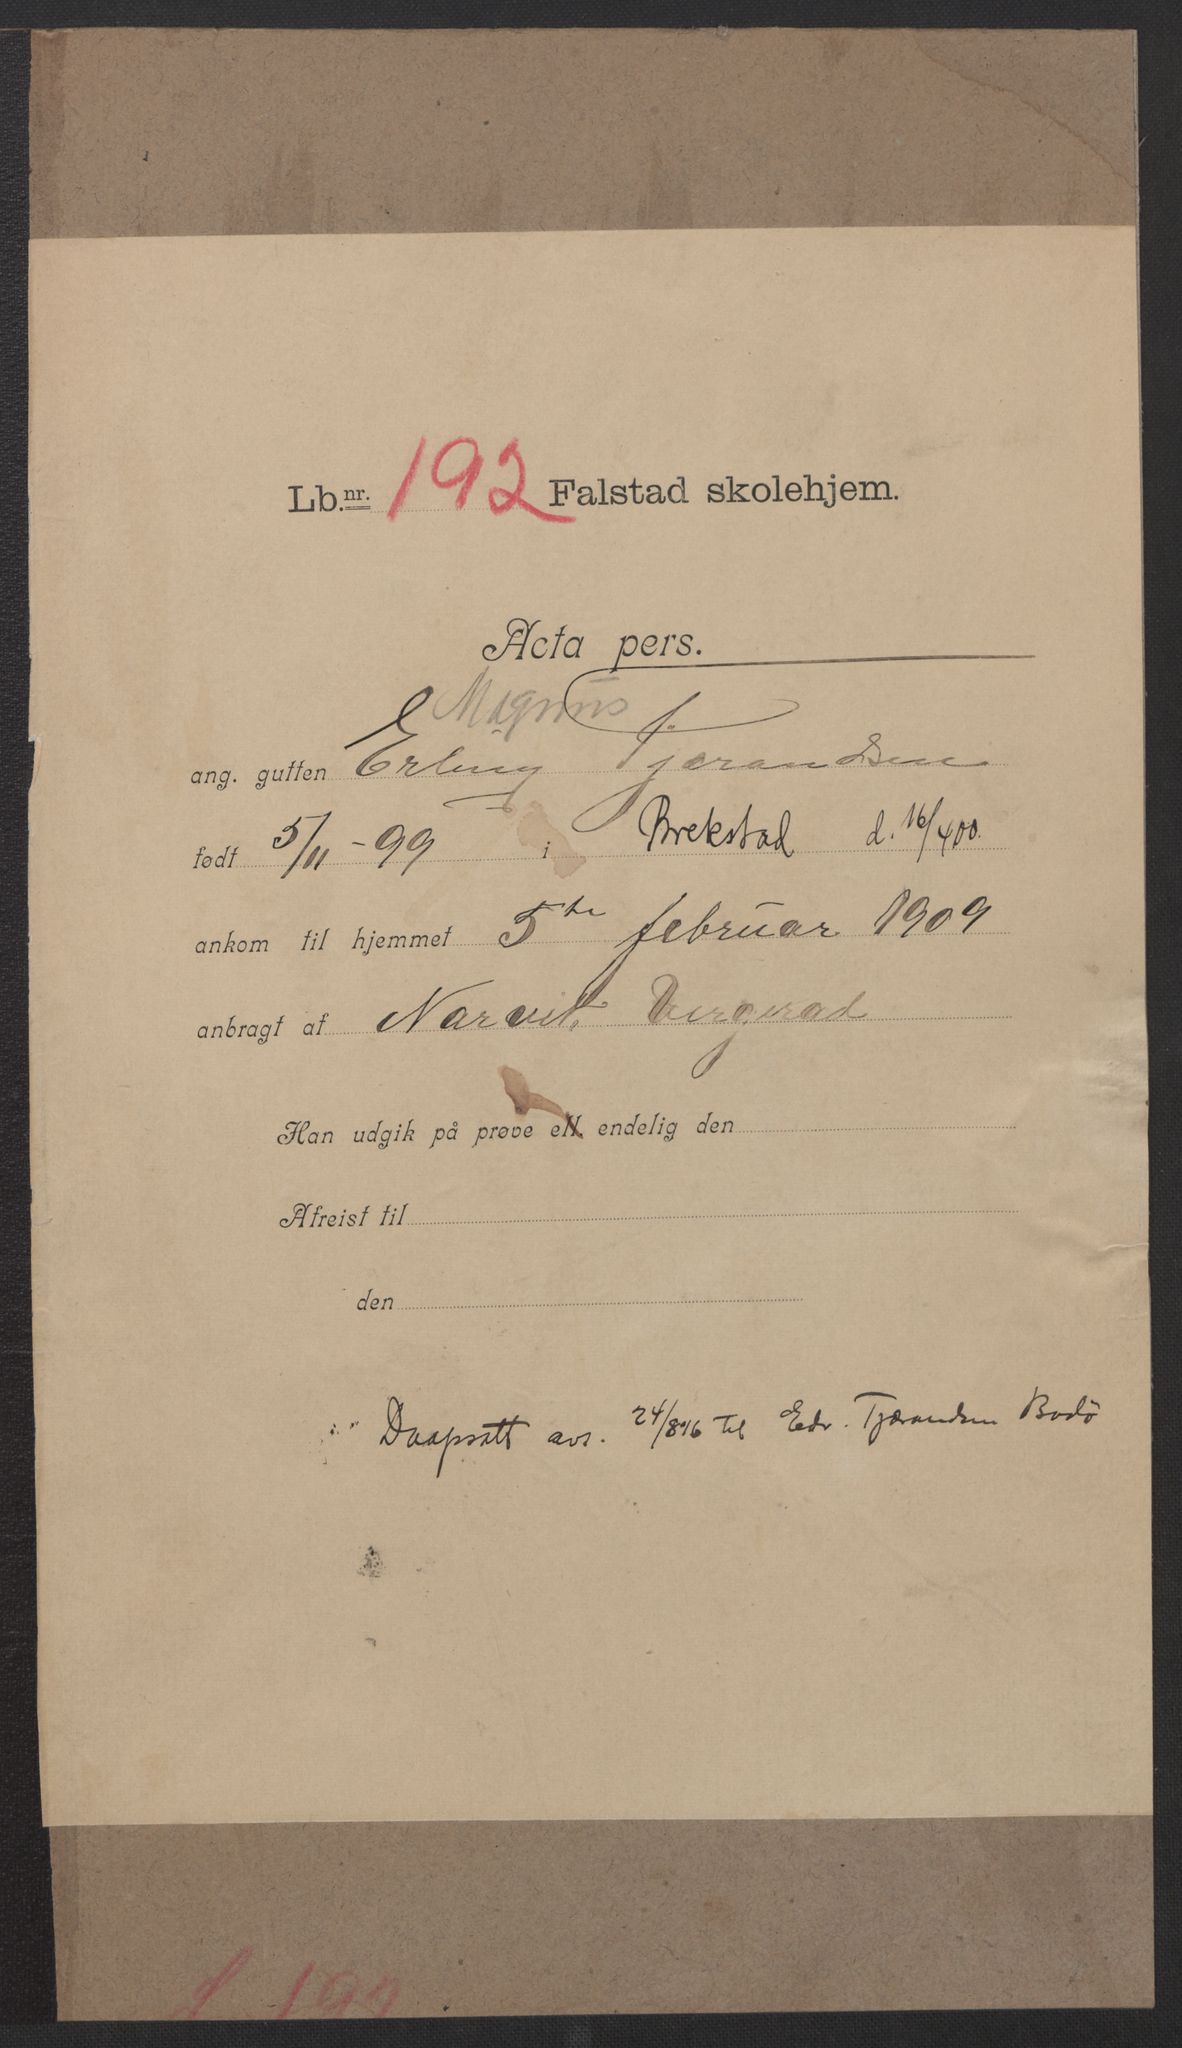 Lb.nr. 192 Falstad skolehjem.
Acta pers.
Magnus
ang. gutten Erling Tjærandsen
født 5/11 - 99 i Brekstad d. 16/4 00.
ankom til hjemmet 5te februar 1909
anbragt af Narvik Vergeraad
Han udgik på prøve ell. endelig den
Afreist til
den
Daapsatt avs. 24/8 16 til Edv. Tjærandsen Bodö